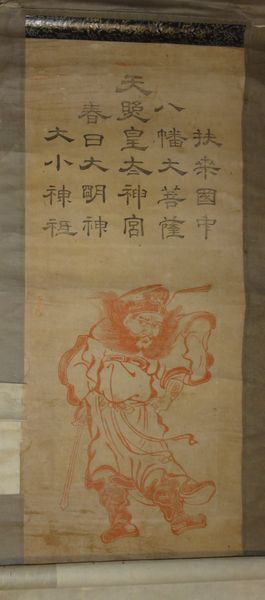 扶桑國中
八幡大菩薩
天照皇太神宮
春日大明神
大小神祇